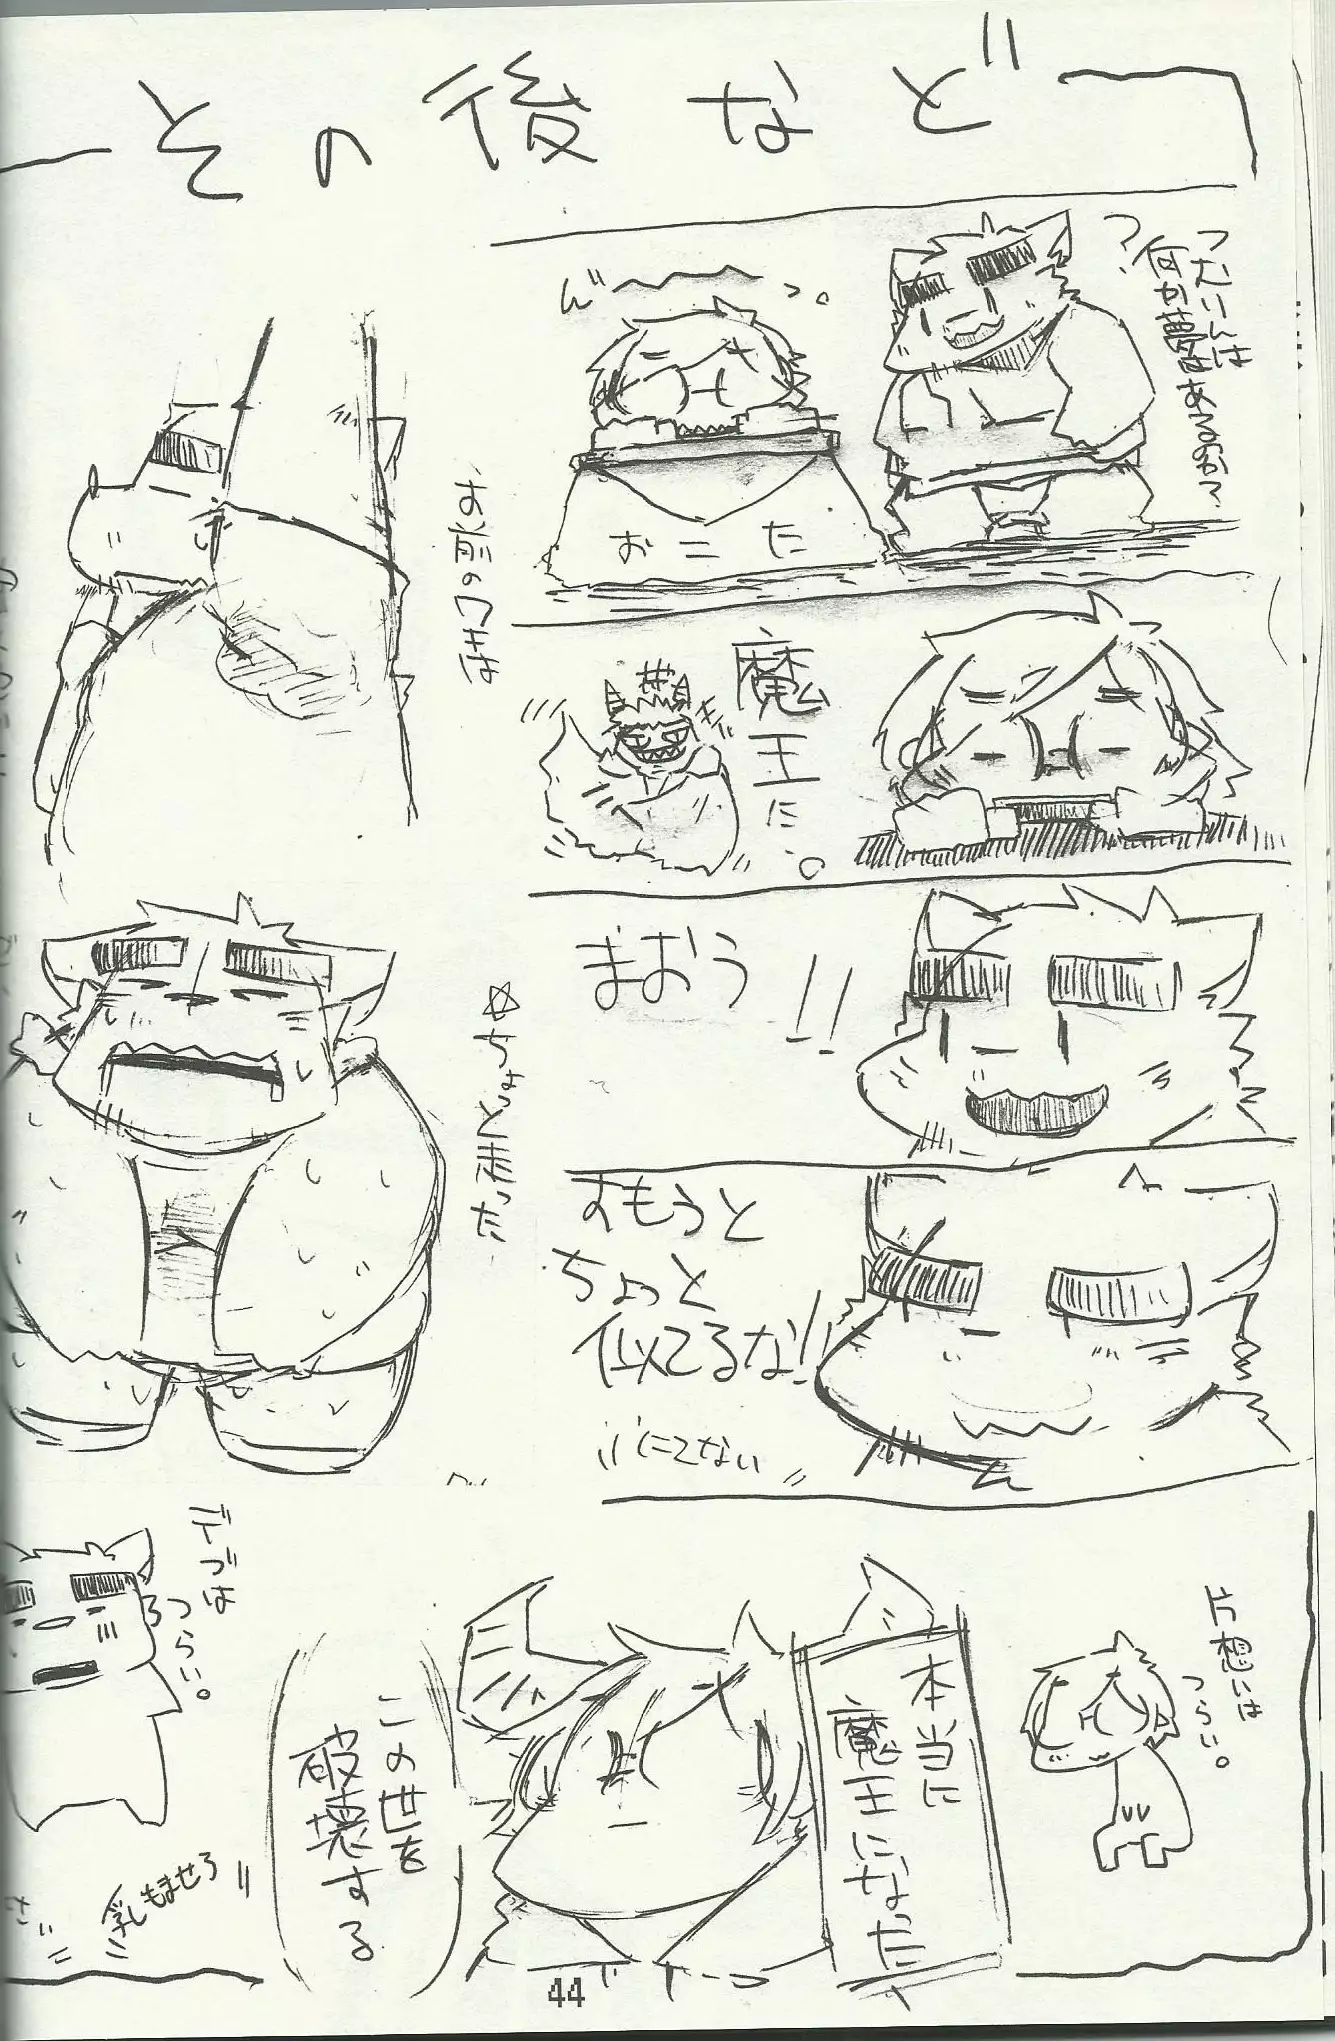 その後など
つむりんは
何か夢はあるのか?
?
ん"〜〜っ。
おこた
魔王に。
まおう!!
すもうと
ちょっと
似てるな!!
"にてない"
☆ちょっと走った
片想いは
つらい。
本当に
魔王になった
この世を
破壊する
デブは
つらい。
乳もませろ
44